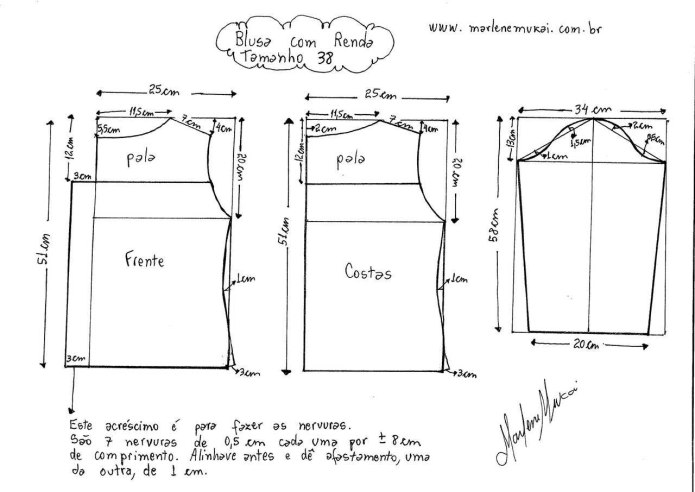 Blusa com Renda
Tamanho 38
www.marlenemukai.com.br
25cm
11,5cm
7cm
5,5cm
4cm
12cm
pala
20cm
3cm
51cm
Frente
1cm
3cm
3cm
25cm
11,5cm
7cm
2cm
4cm
12cm
pala
20cm
51cm
Costas
1cm
3cm
34cm
2cm
13cm
1,5cm
1cm
58cm
20cm
Este acréscimo é para fazer as nervuras.
São 7 nervuras de 0,5 cm cada uma por ± 8cm
de comprimento. Alinhave antes e dê afastamento, uma
da outra, de 1 cm.
Marlene Mukai